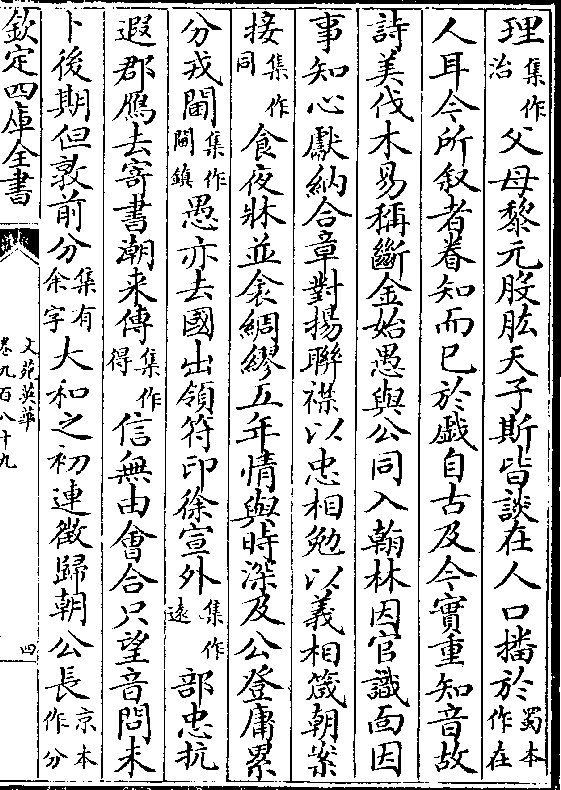 理集作治父母黎元股肱天子斯皆談在人口播於蜀本作在
人耳今所叙者眷知而已於戲自古及今實重知音故
詩美伐木易稱斷金始愚與公同入翰林因官識面因
事知心獻納合章對揚聯襟以忠相勉以義相箴朝案
接集作同食夜牀並衾綢繆五年情與時深及公登庸累
分戎閫集作閫鎮愚亦去國出領符印徐宣外集作遠部忠杭
遐郡鴈去寄書潮来傳集作得信無由會合只望音問未
卜後期但敦前分集有余字大和之初連徵歸朝公長京本作分
欽定四庫全書
文苑英華
卷九百八十九
四